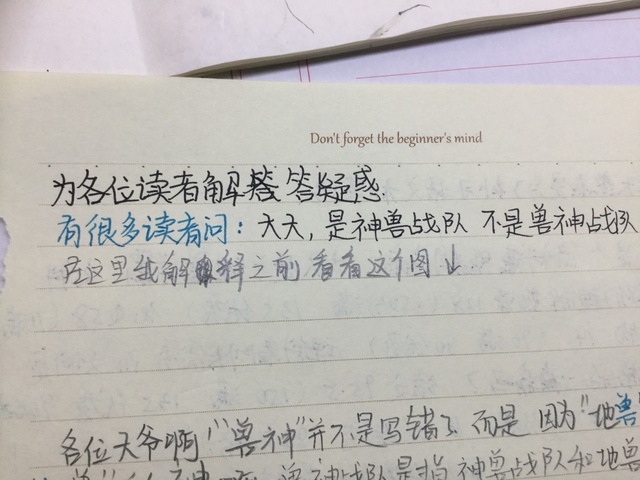 Don't forget the beginner's mind
为各位读者解答疑惑
有很多读者问：大大，是神兽战队 不是兽神战队
在这里我解释之前，看看这个图↓
各位大爷啊！“兽神”并不是写错了 而是 因为“地兽
兽神战队是指神兽战队和地兽